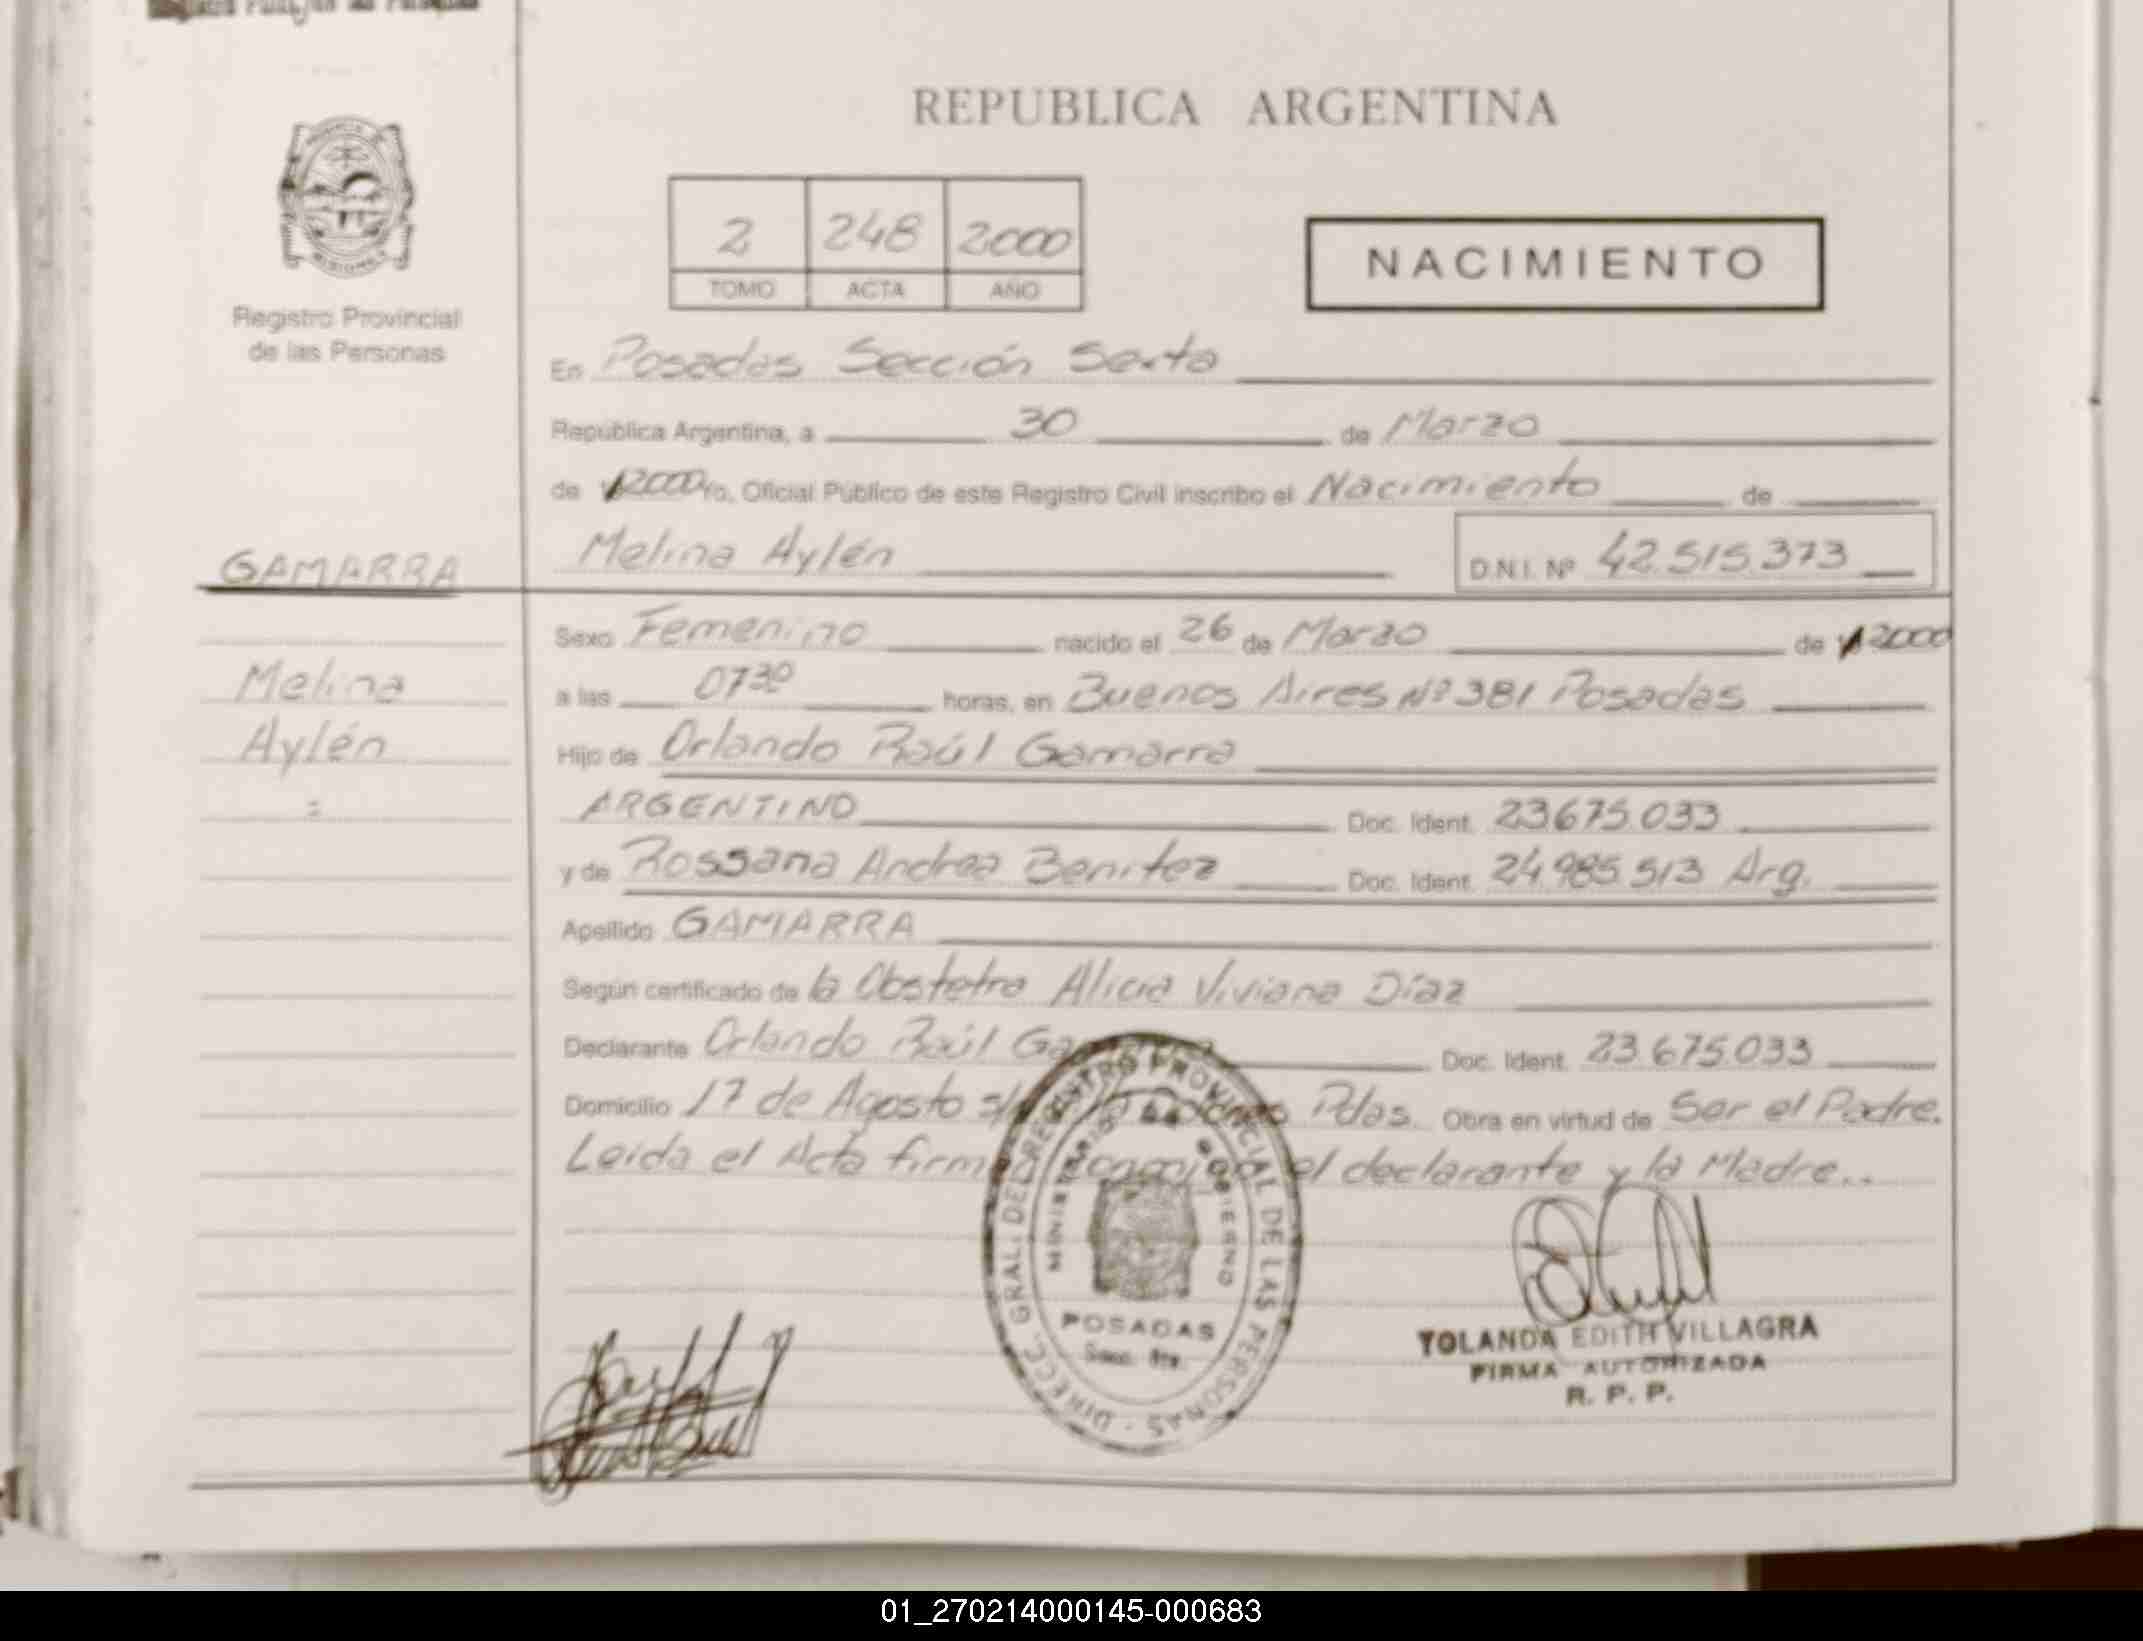 REPUBLICA ARGENTINA
2 248 2000
TOMO ACTA AÑO
NACIMIENTO
Registro Provincial
de las Personas
En Posadas Sección Sexta
República Argentina, a 30 de Marzo
de 2000 Yo, Oficial Público de este Registro Civil inscribo el Nacimiento de
GAMARRA
Melina Aylén D.N.I. Nº 42.515.373
Sexo Femenino nacido el 26 de Marzo de 2000
Melina
Aylén
=
a las 0730 horas, en Buenos Aires Nº 381 Posadas
Hijo de Orlando Raúl Gamarra
ARGENTINO Doc. Ident. 23.675.033
y de Rossana Andrea Benitez Doc. Ident. 24.985.513 Arg.
Apellido GAMARRA
Según certificado de la Obstetra Alicia Viviana Díaz
Declarante Orlando Raúl Doc. Ident. 23.675.033
Domicilio 17 de Agosto Pdas. Obra en virtud de Ser el Padre.
Leida el Acta el declarante y la Madre..
DIRECC. GRAL. DEL REGISTRO PROVINCIAL DE LAS PERSONAS
MINISTERIO DE GOBIERNO
POSADAS
Secc. 6ta.
YOLANDA EDITH VILLAGRA
FIRMA AUTORIZADA
R. P. P.
01_270214000145-000683